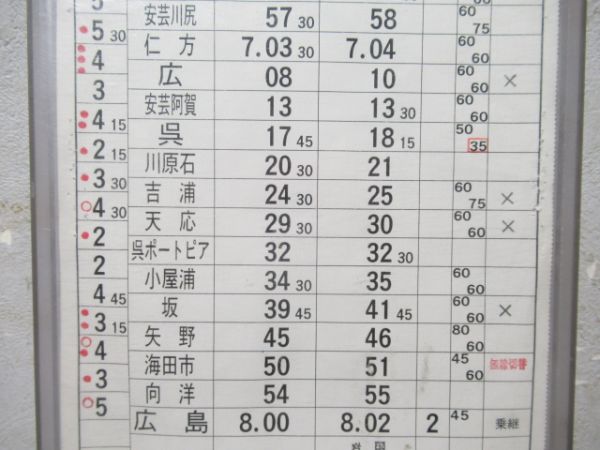 5 安芸川尻 57 30 58 60 75
5 30 仁方 7.03 30 7.04 60
4 広 08 10 60 60 ×
3 安芸阿賀 13 13 30 60 60
4 15 呉 17 45 18 15 50 35
2 15 川原石 20 30 21
3 30 吉浦 24 30 25 60 75 ×
4 30 天応 29 30 30 60 60 ×
2 呉ポートピア 32 32 30
2 小屋浦 34 30 35 60 60
4 45 坂 39 45 41 45 60 60 ×
3 15 矢野 45 46 80 60
4 海田市 50 51 45 60
3 向洋 54 55
5 広島 8.00 8.02 2 45 乗継